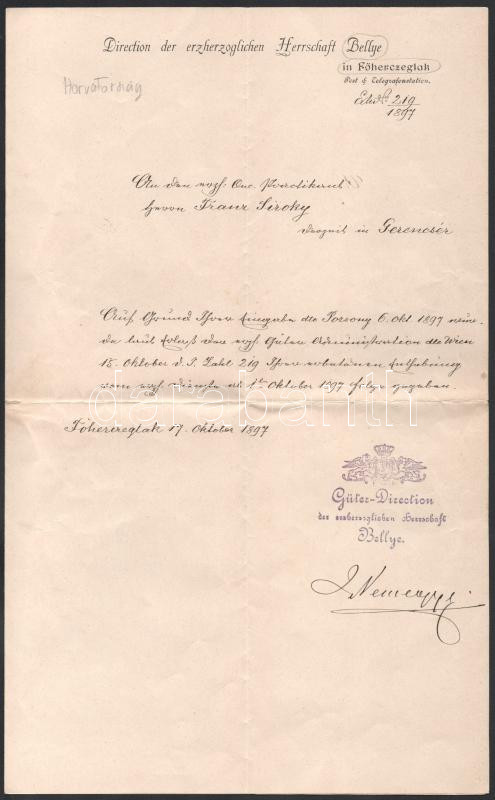 Direction der erzherzoglichen Herrschaft Bellye
in Főherczeglak
Post & Telegrafenstation.
Horvátország
219
1897
An den erzh. Oec. Practikant
Herrn Franz Siroky
derzeit in Gerencsér
Auf Grund Ihrer Eingabe dto Pozsony 6. Okt. 1897 wur-
de laut Erlaß der erzh. Güter Administration dto Wien
15. Oktober d. J. Zahl 219 Ihrer erbetenen Enthebung
vom erzh. Dienste ab 1ten Oktober 1897 Folge gegeben.
darabanth
Főherczeglak 17. Oktober 1897
Güter-Direction
der erzherzoglichen Herrschaft
Bellye.